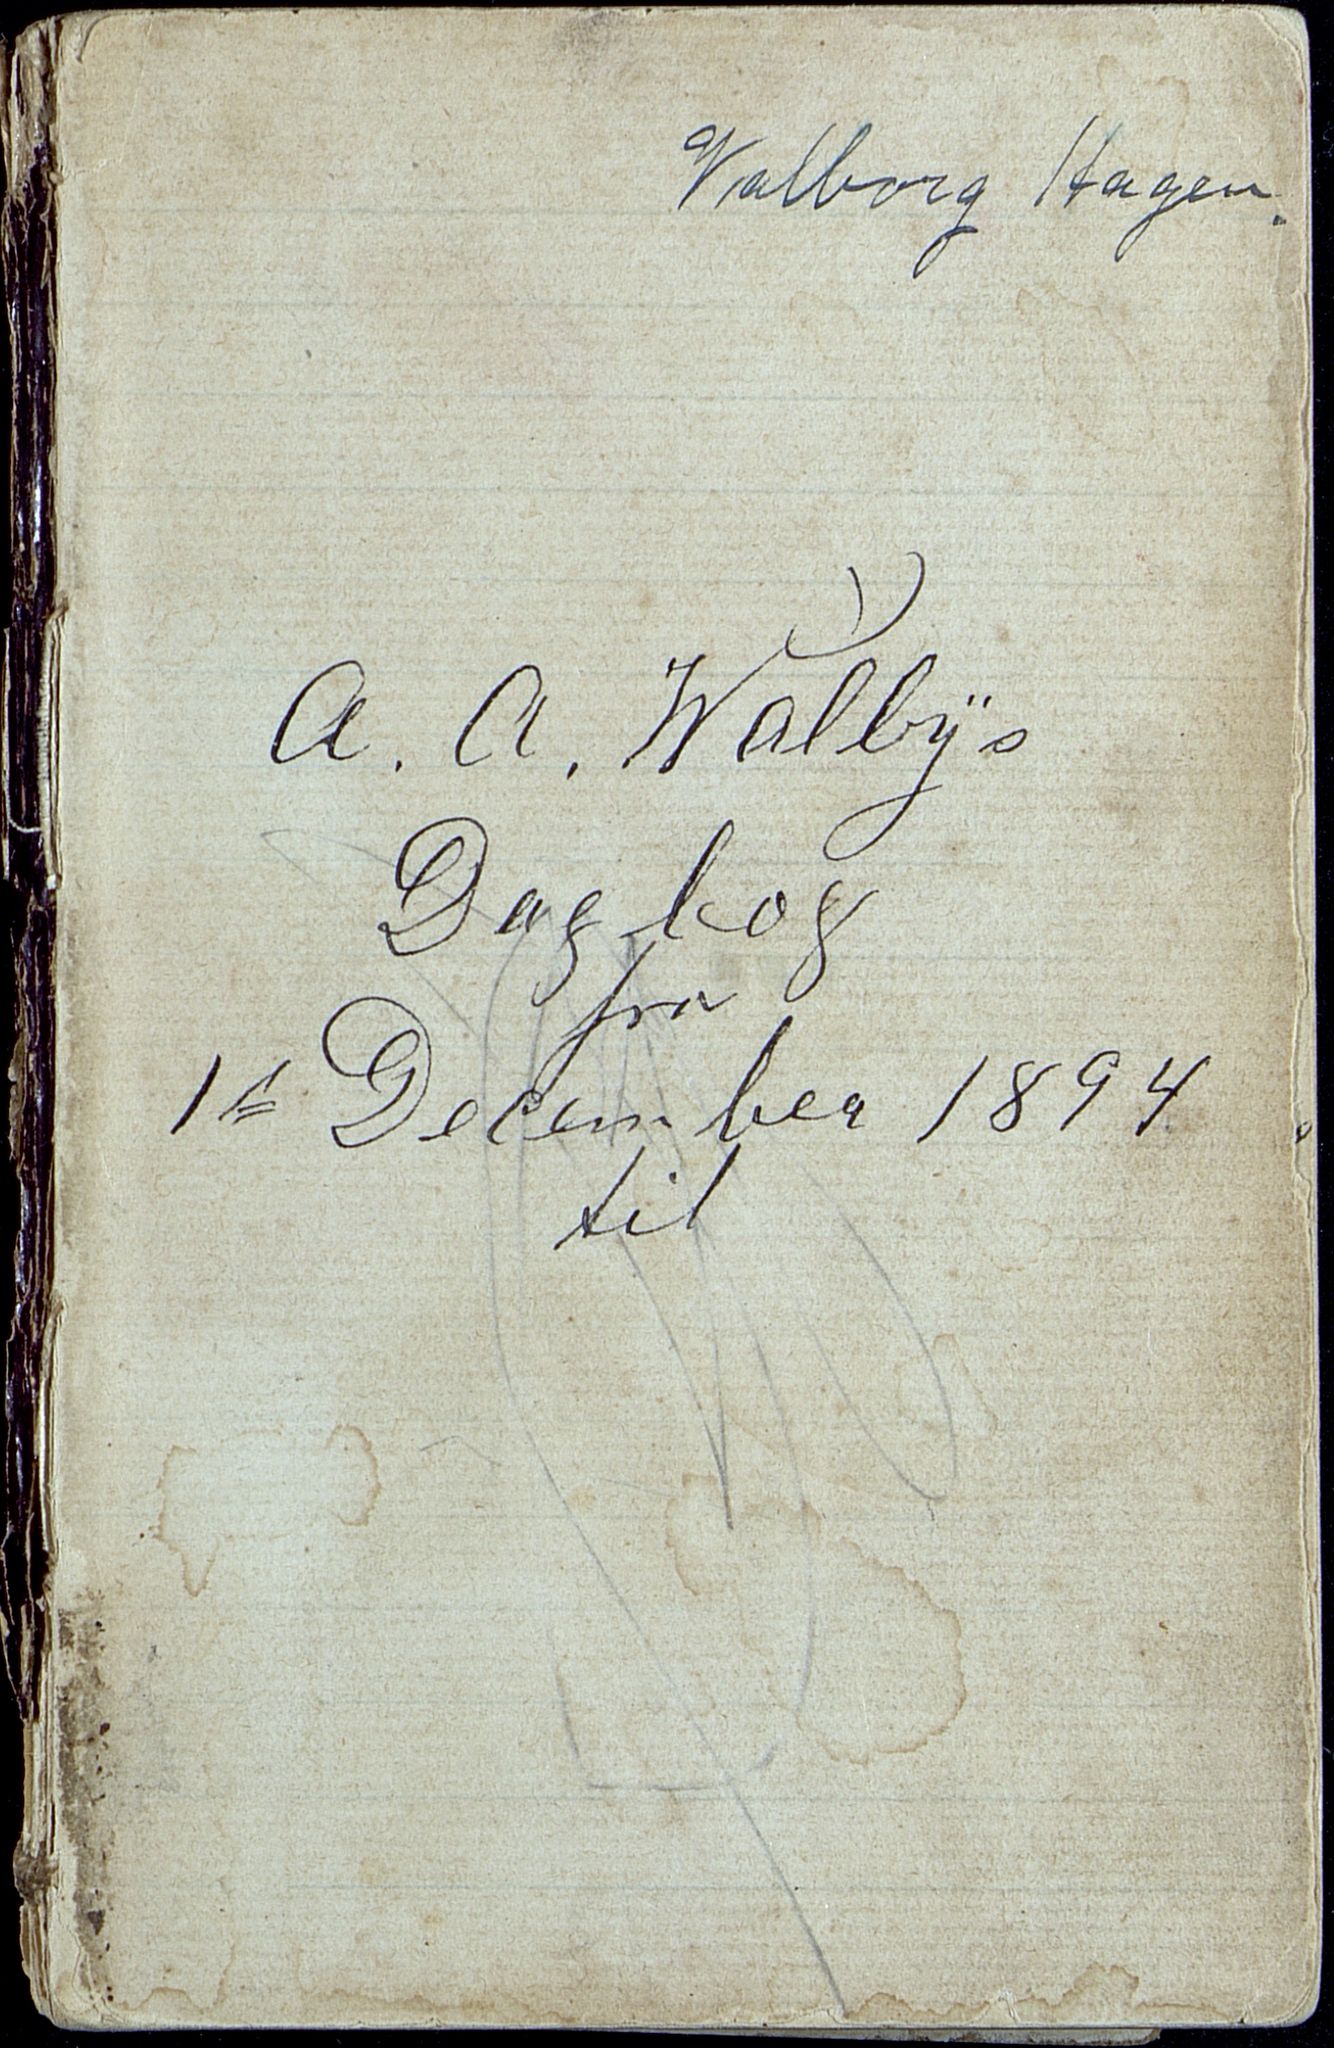 Valborg Hagen.
A. A. Walbÿs
Dagbog
fra
1ste December 1894.
til